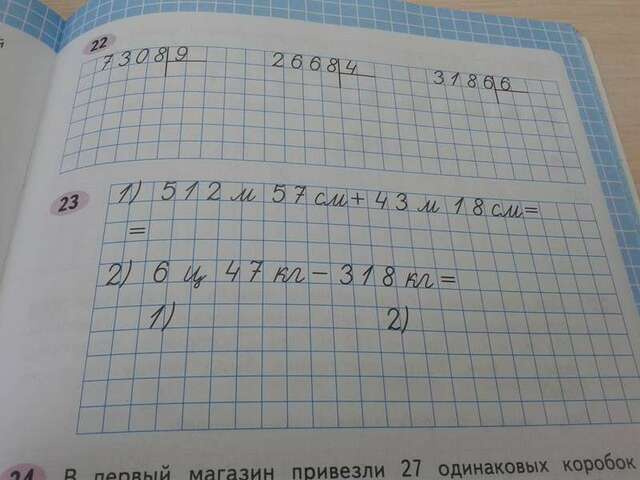 22
7308 9 2668 4 3186 6
23
1) 512 м 57 см + 43 м 18 см =
=
2) 6 ц 47 кг – 318 кг =
1) 2)
24 В первый магазин привезли 27 одинаковых коробок